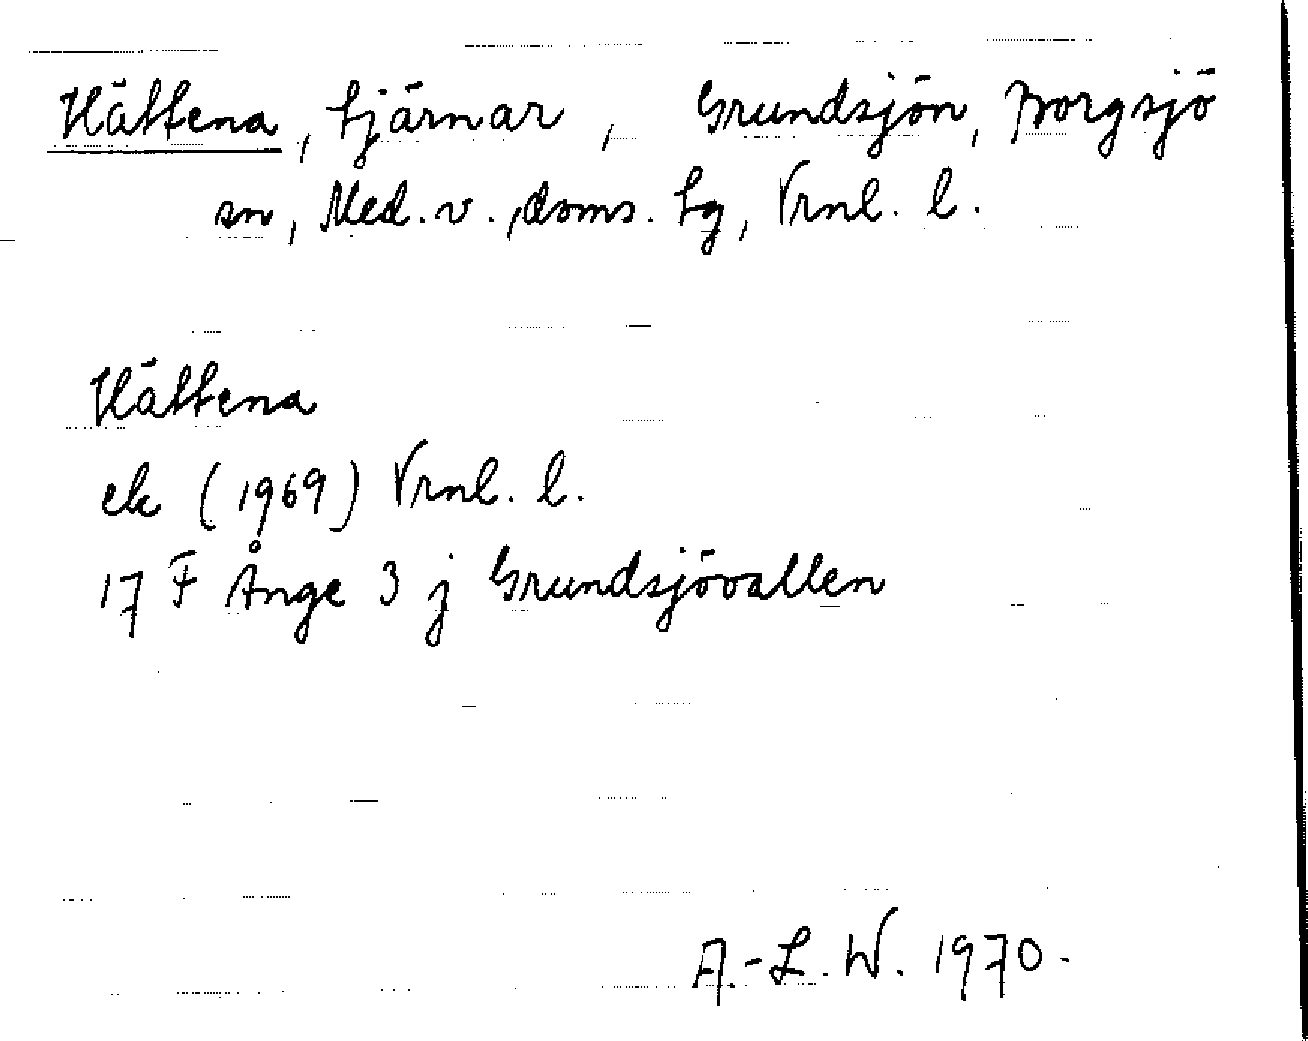 Hättena, tjärnar, Grundsjön, Borgsjö
sn, Med. v., doms. tg, Vrnl. l.
Hättena
ek (1969) Vrnl. l.
17 F Ånge 3 j Grundsjövallen
A.-L. W. 1970.